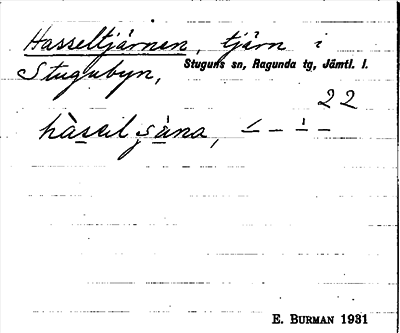 Hasseltjärnen, tjärn i
Stugubyn, Stuguns sn, Ragunda tg, Jämtl. l.
22
E. BURMAN 1931